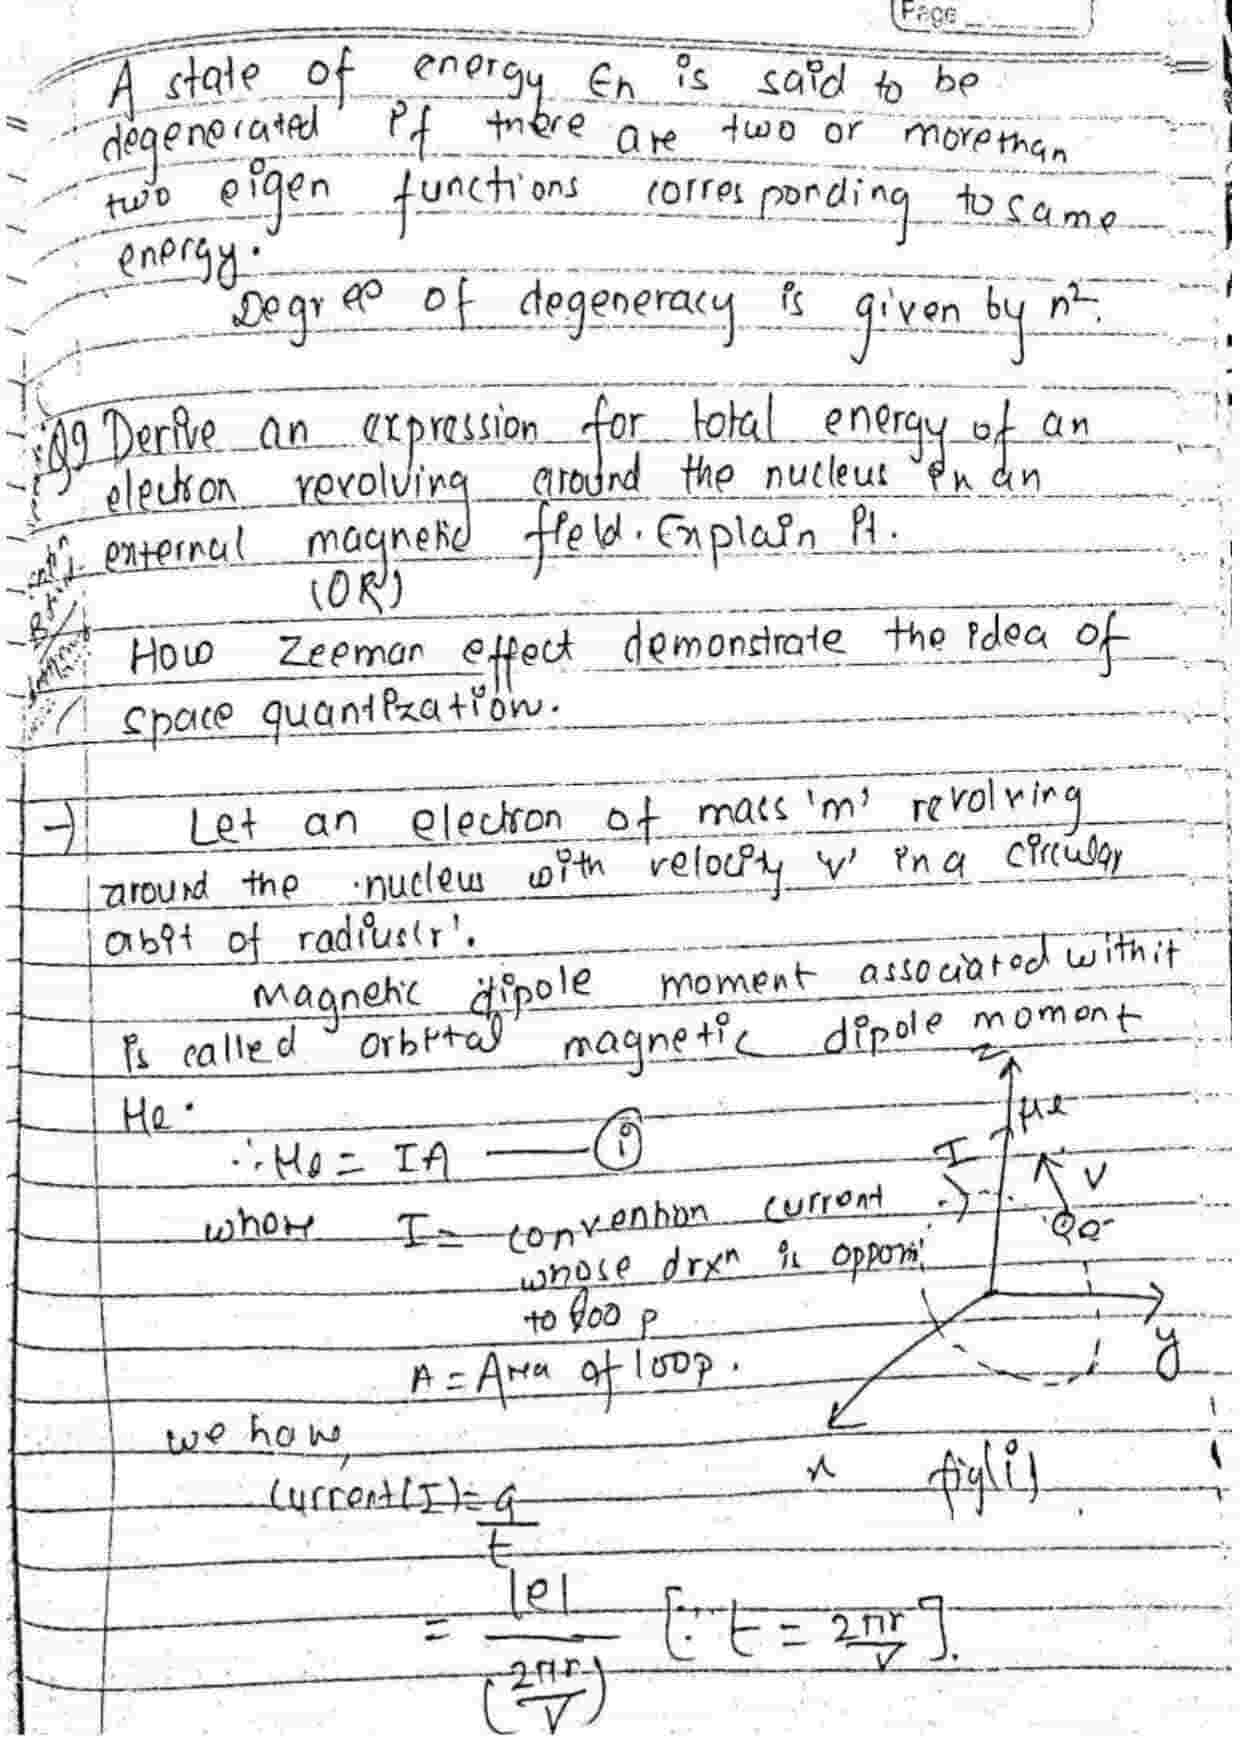 Page
A state of energy En is said to be
degenerated if there are two or morethan
two eigen functions corresponding to same
energy.
Degree of degeneracy is given by n².
Q9 Derive an expression for total energy of an
electron revolving around the nucleus in an
external magnetic field. Explain it.
(OR)
How Zeeman effect demonstrate the idea of
space quantization.
→ Let an electron of mass 'm' revolving
around the nucleus with velocity 'v' in a circular
orbit of radius 'r'.
Magnetic dipole moment associated with it
is called orbital magnetic dipole moment
μe.
∴ μe = IA —— (i)
where I = convention current
whose drxn is opposi
to loop
A = Area of loop.
we have,
current(I) = q/t
= |e|/(2πr/v) [∵ t = 2πr/v].
z
μe
I
v
e-
y
x
fig(i)